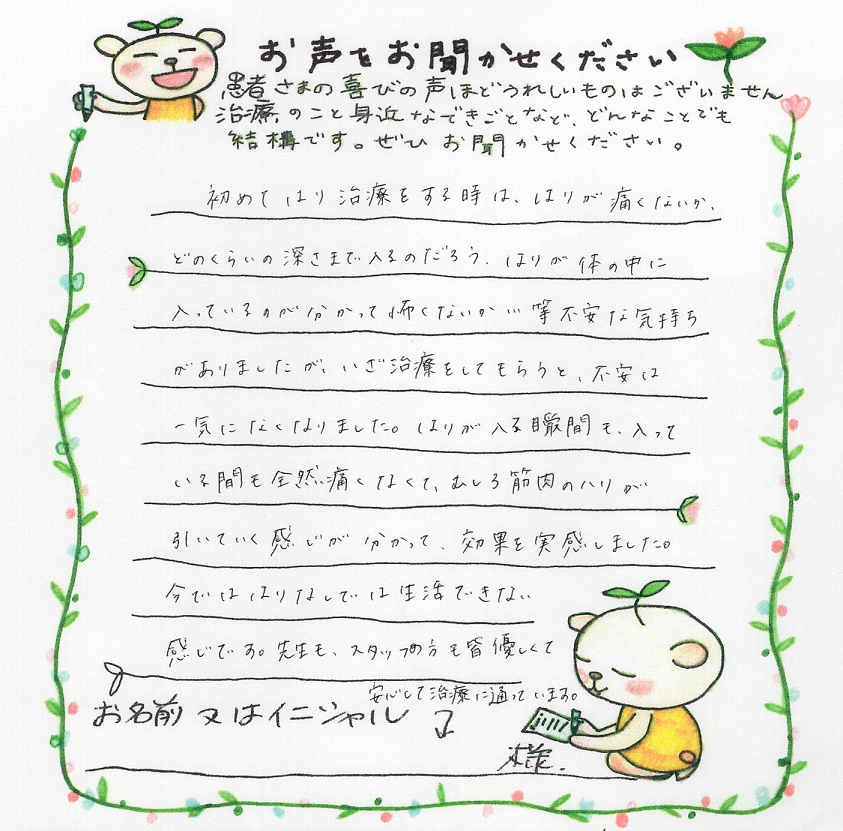 お声をお聞かせください
患者さまの喜びの声ほどうれしいものはございません
治療のこと身近なできごとなど、どんなことでも
結構です。ぜひお聞かせください。
初めてはり治療をする時は、はりが痛くないか、
どのくらいの深さまで入るのだろう、はりが体の中に
入っているのが分かって怖くないか…等不安な気持ち
がありましたが、いざ治療をしてもらうと、不安は
一気になくなりました。はりが入る瞬間も、入って
いる間も全然痛くなくて、むしろ筋肉のハリが
引いていく感じが分かって、効果を実感しました。
今でははりなしでは生活できない
感じです。先生も、スタッフの方も皆優しくて
安心して治療に通っています。
お名前又はイニシャル↓
様.